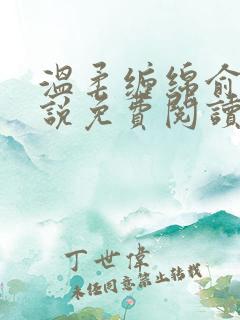 溫柔纏綿俞
說免費閱讀
丁世偉
未任同意禁止轉載